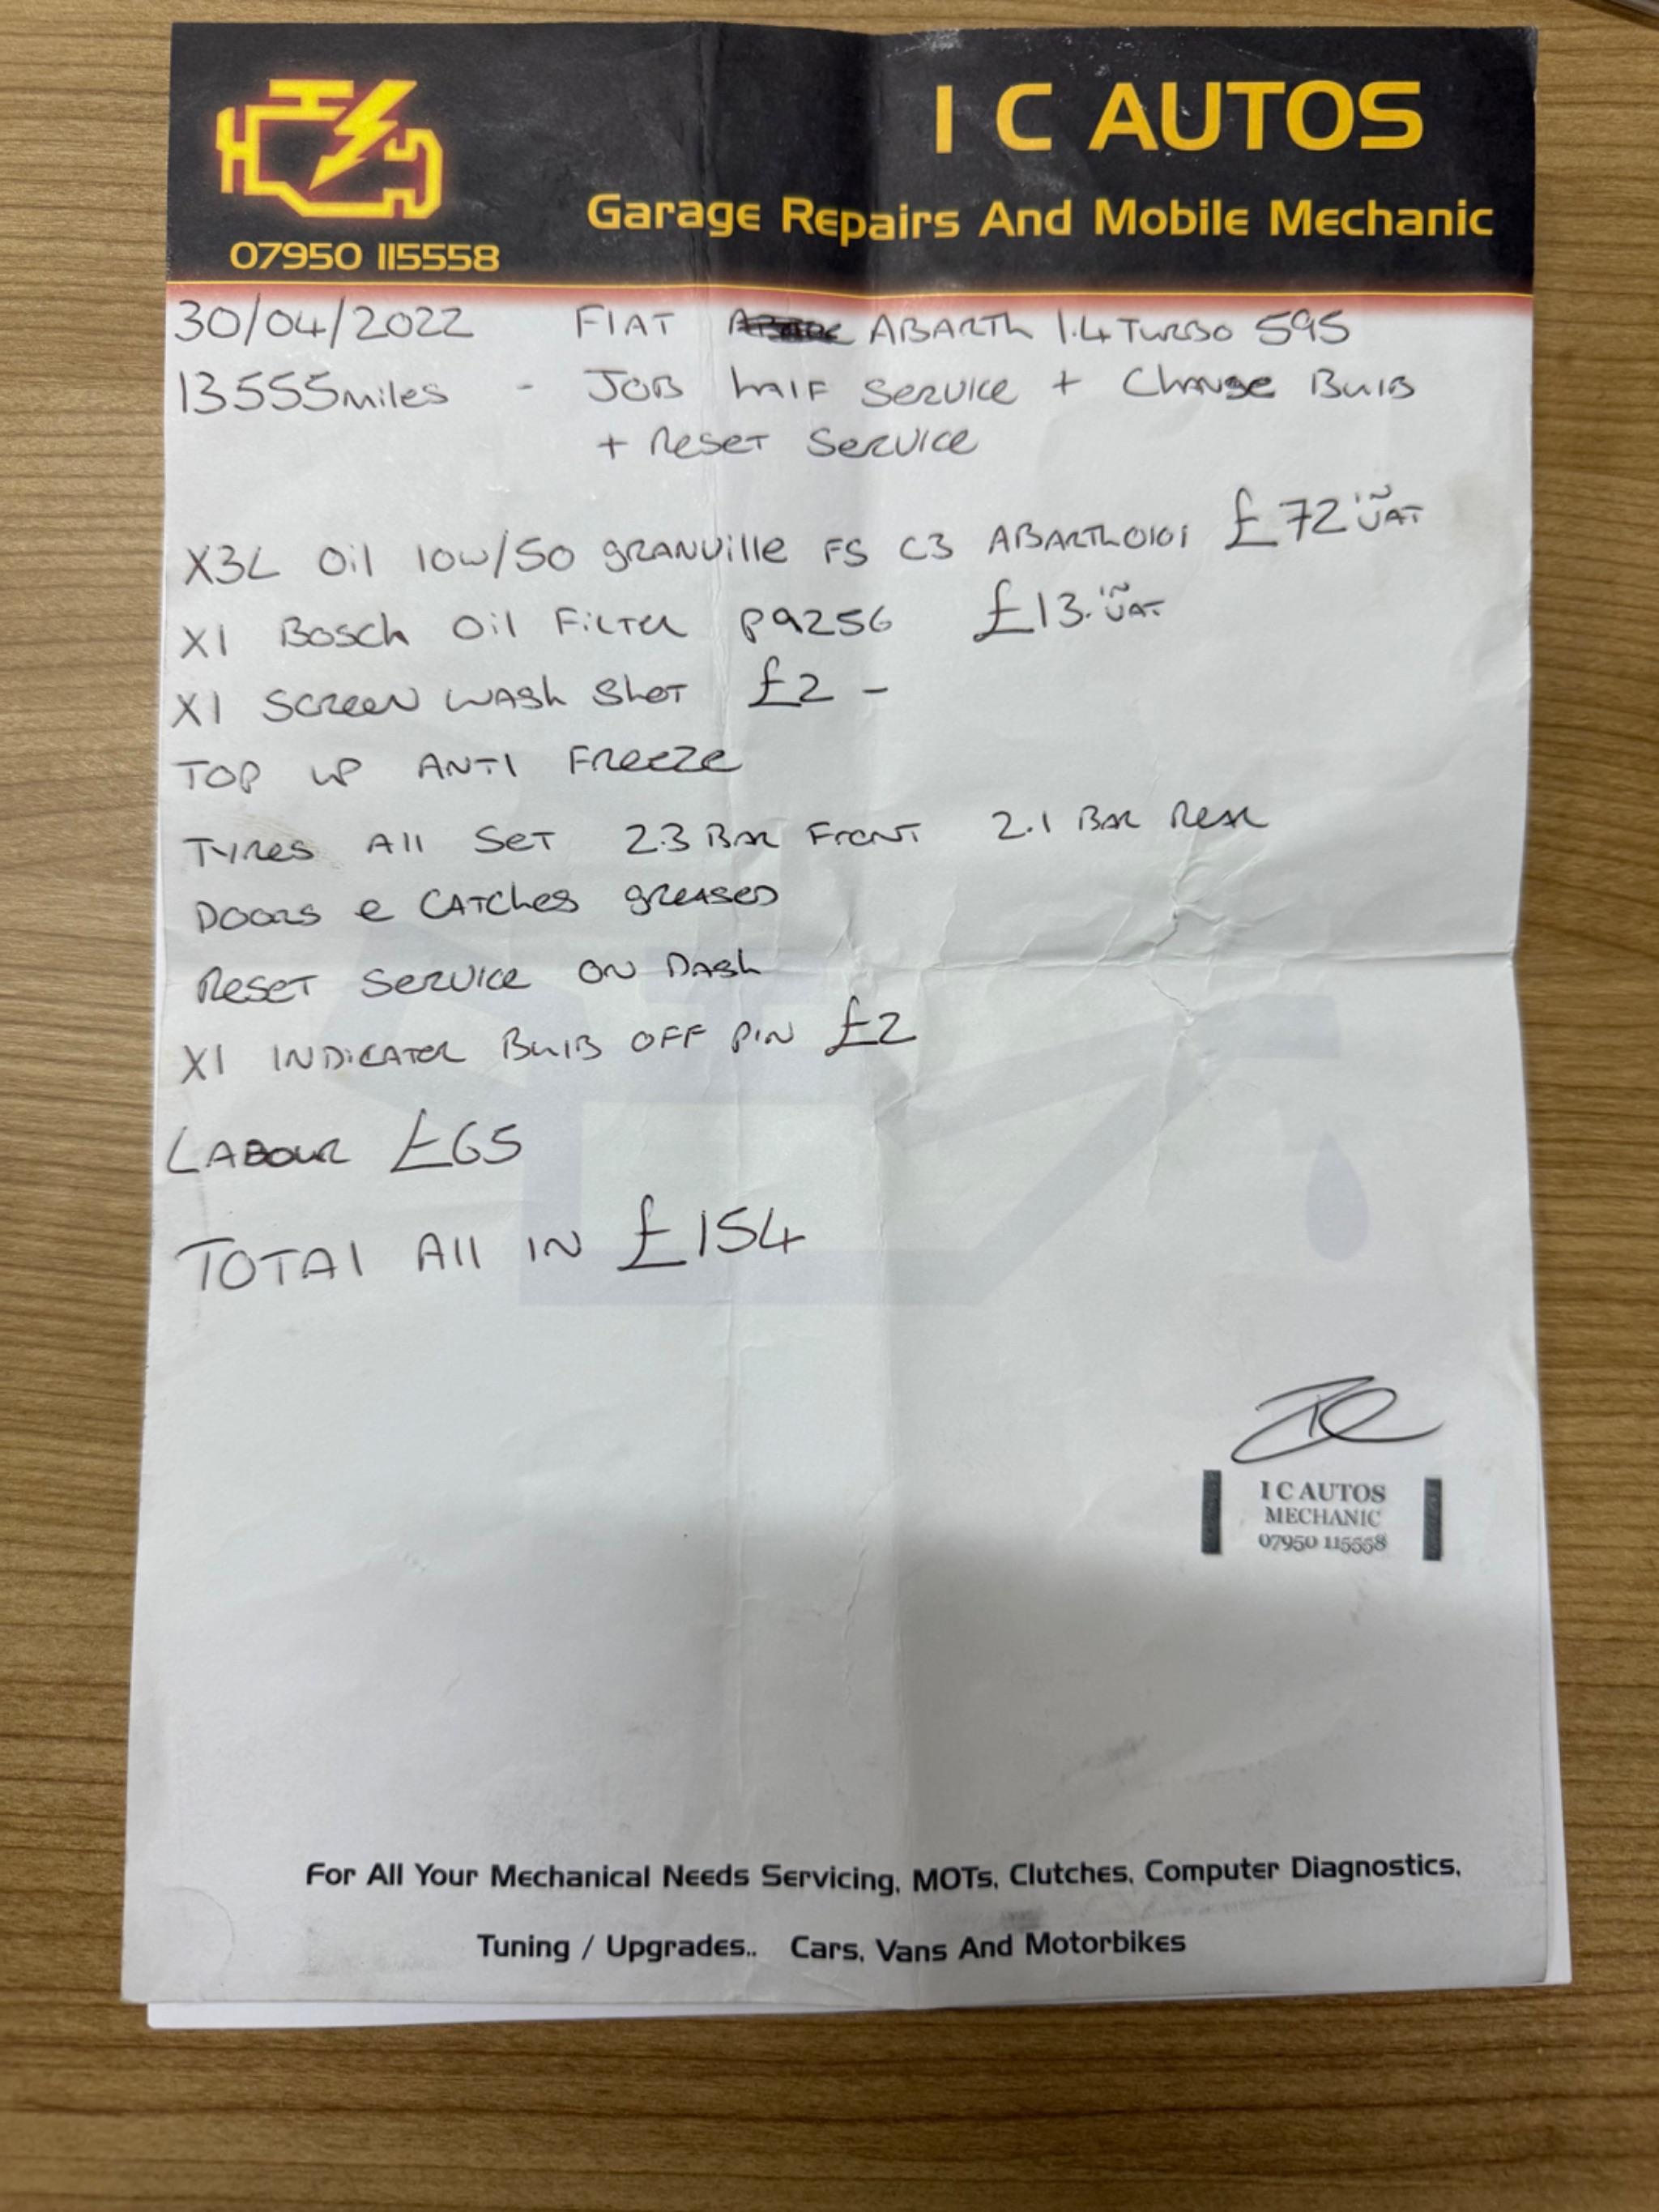 I C AUTOS
Garage Repairs And Mobile Mechanic
07950 115558
30/04/2022 FIAT ABARTH 1.4 TURBO 595
13555miles - JOB HALF SERVICE + CHANGE BULB
+ RESET SERVICE
X3L Oil 10W/50 GRANVille FS C3 ABARTH0101 £72 IN VAT
X1 BOSCH Oil FILTER P9256 £13. IN VAT
X1 SCREEN WASH SHOT £2 -
TOP UP ANTI FREEZE
TYRES All SET 2.3 BAR FRONT 2.1 BAR REAR
DOORS e CATCHES GREASED
RESET SERVICE ON DASH
X1 INDICATOR BULB OFF PIN £2
LABOUR £65
TOTAL All IN £154
I C AUTOS
MECHANIC
07950 115558
For All Your Mechanical Needs Servicing, MOTs, Clutches, Computer Diagnostics,
Tuning / Upgrades.. Cars, Vans And Motorbikes